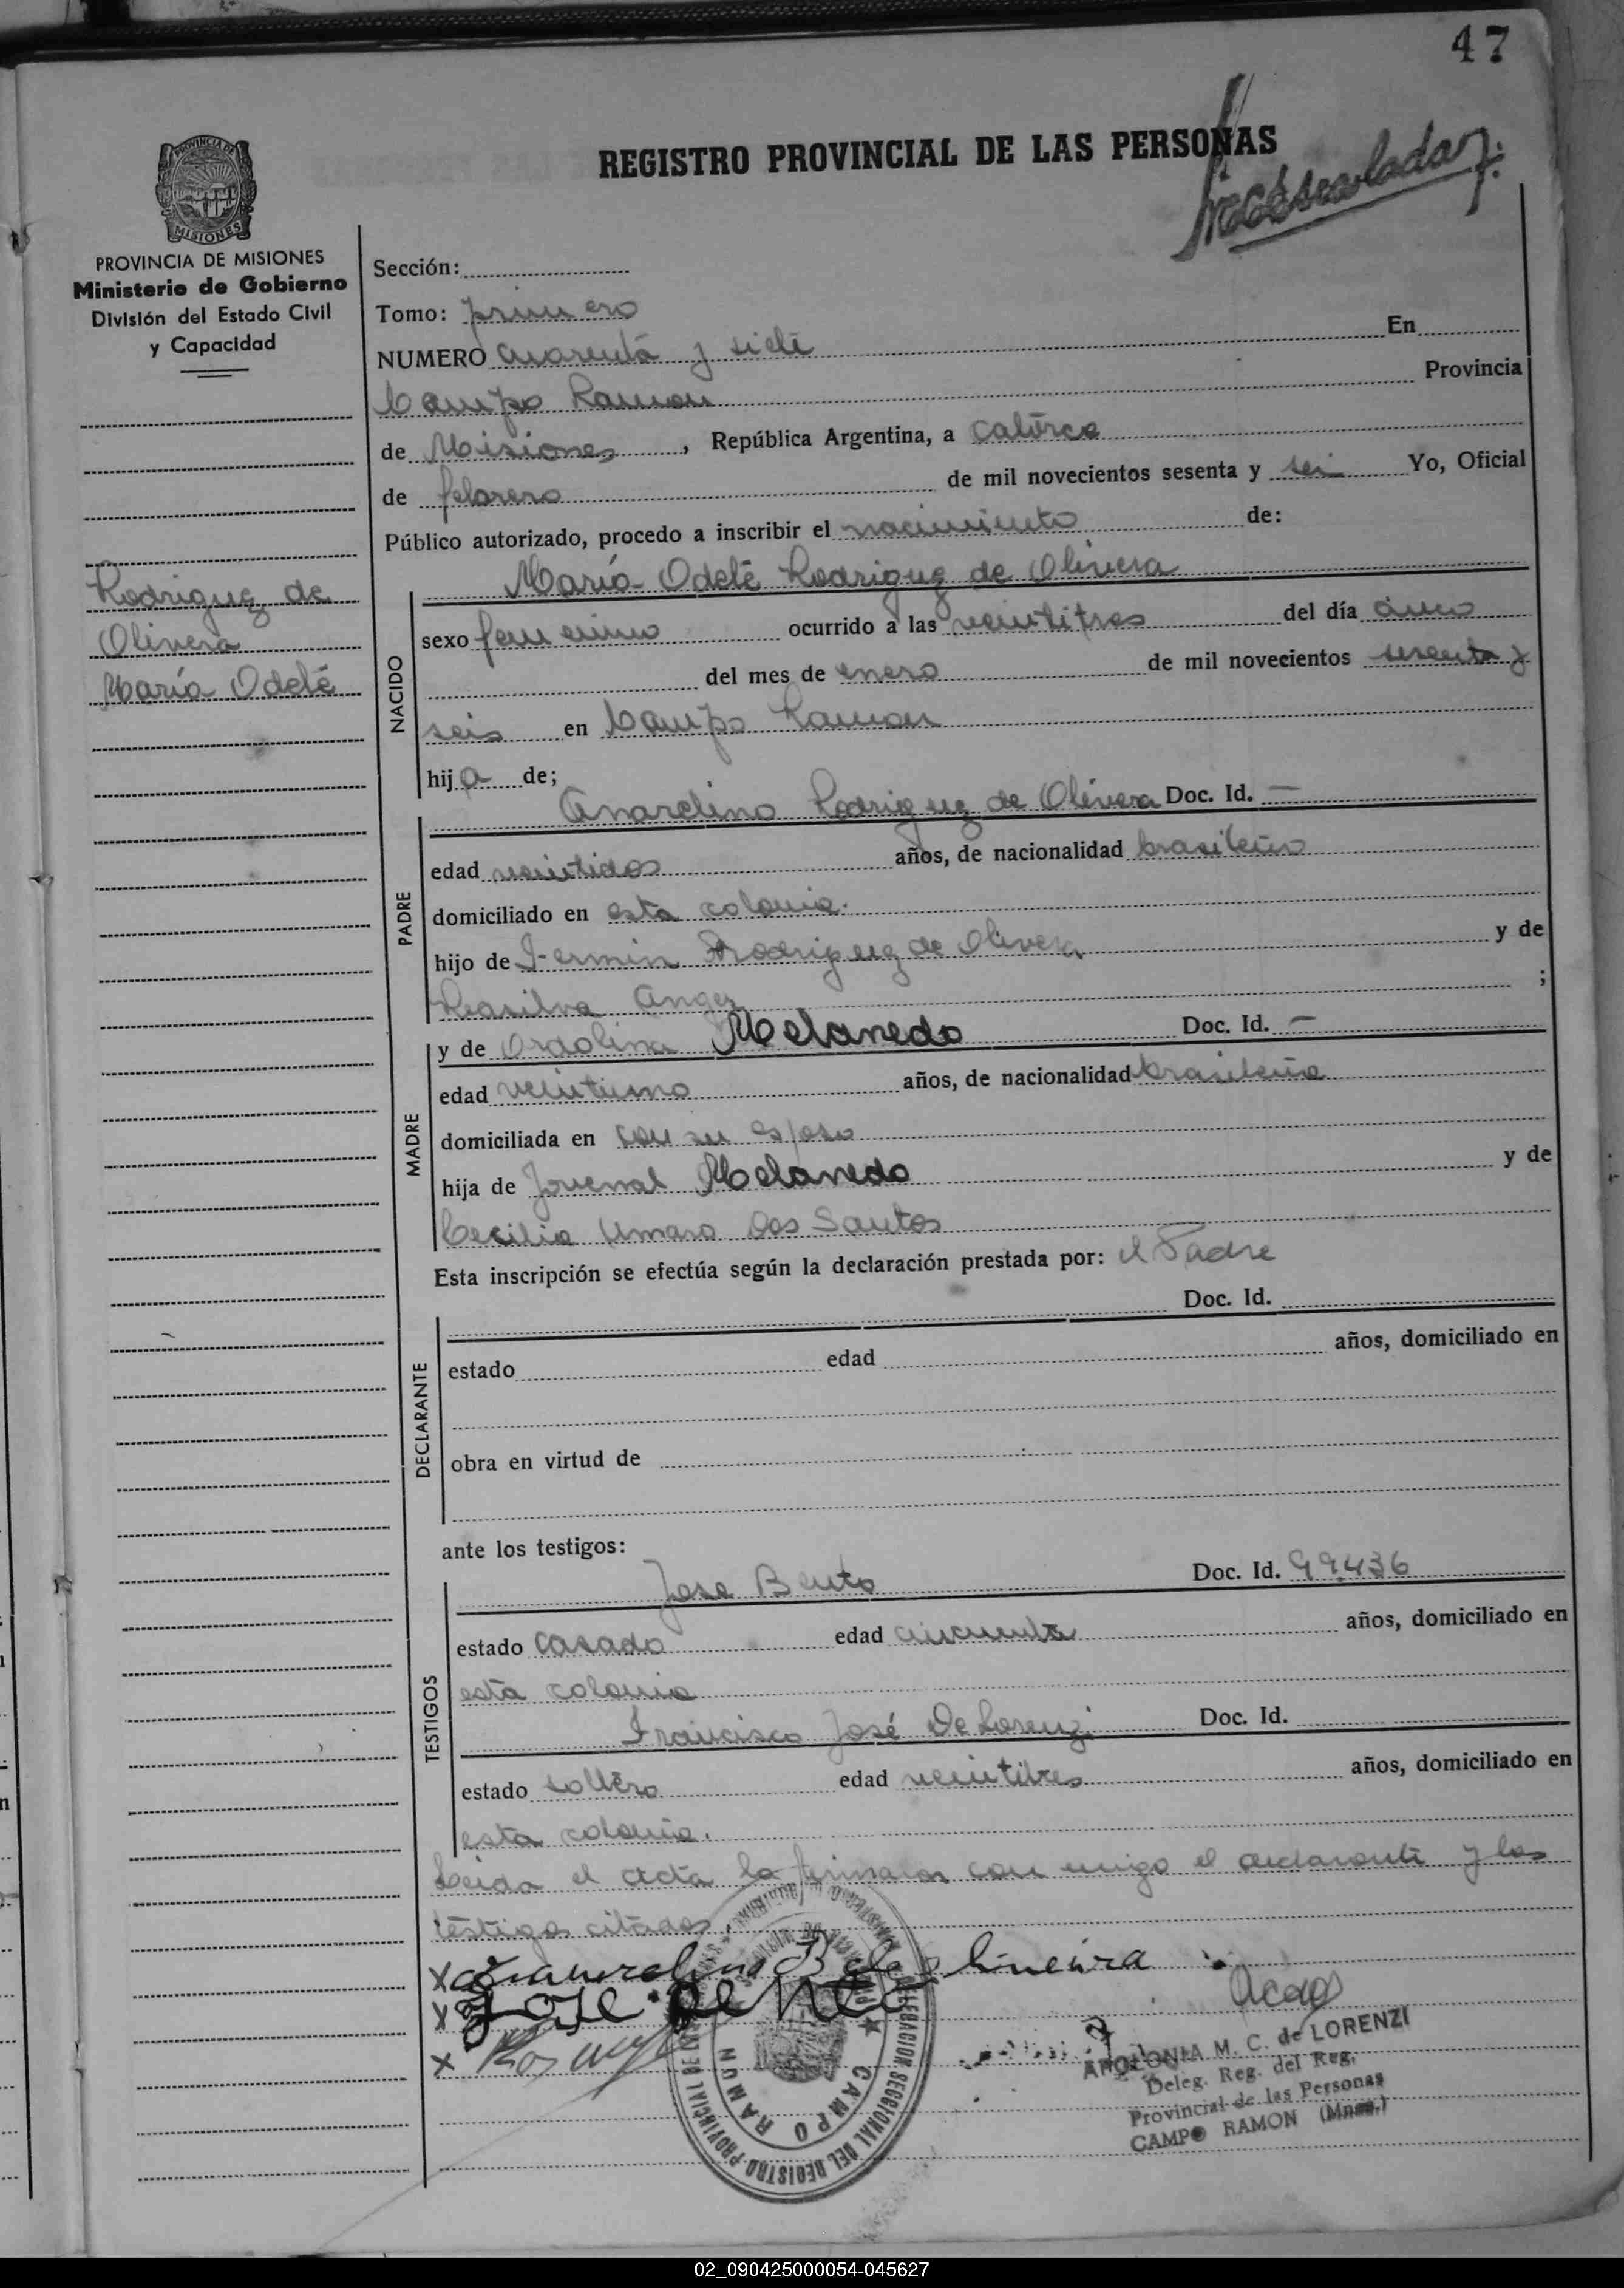 47
REGISTRO PROVINCIAL DE LAS PERSONAS
PROVINCIA DE
MISIONES
PROVINCIA DE MISIONES
Ministerio de Gobierno
División del Estado Civil
y Capacidad
Rodriguez de
Olivera
María Odete
Sección:
Tomo: primero
NUMERO cuarenta y siete En
Campo Ramon Provincia
de Misiones, República Argentina, a catorce
de febrero de mil novecientos sesenta y seis Yo, Oficial
Público autorizado, procedo a inscribir el nacimiento de:
NACIDO
María Odete Rodriguez de Olivera
sexo femenino ocurrido a las veintitres del día cinco
del mes de enero de mil novecientos sesenta y
seis en Campo Ramon
hija de;
PADRE
Anarelino Rodriguez de Olivera Doc. Id. —
edad veintidos años, de nacionalidad brasileño
domiciliado en esta colonia.
hijo de Fermin Rodriguez de Olivera y de
;
MADRE
y de Ordolina Melanedo Doc. Id. —
edad veintiuno años, de nacionalidad brasileña
domiciliada en con su esposo
hija de Jouenal Melanedo y de
Cecilia Umara Dos Santos
Esta inscripción se efectúa según la declaración prestada por: el Padre
DECLARANTE
Doc. Id.
estado edad años, domiciliado en
obra en virtud de
ante los testigos:
TESTIGOS
Jose Bento Doc. Id. 99.436
estado casado edad cincuenta años, domiciliado en
esta colonia
Francisco José De Lorenzi Doc. Id.
estado soltero edad veintitres años, domiciliado en
esta colonia.
Leida el acta la firmaron con migo el declarante y los
testigos citados.
X
X José Bento
X
CAMPO RAMON
DELEGACION SECCIONAL DEL REGISTRO PROVINCIAL DE LAS
APOLONIA M. C. de LORENZI
Deleg. Reg. del Reg.
Provincial de las Personas
CAMPO RAMON (Mnes.)
02_090425000054-045627